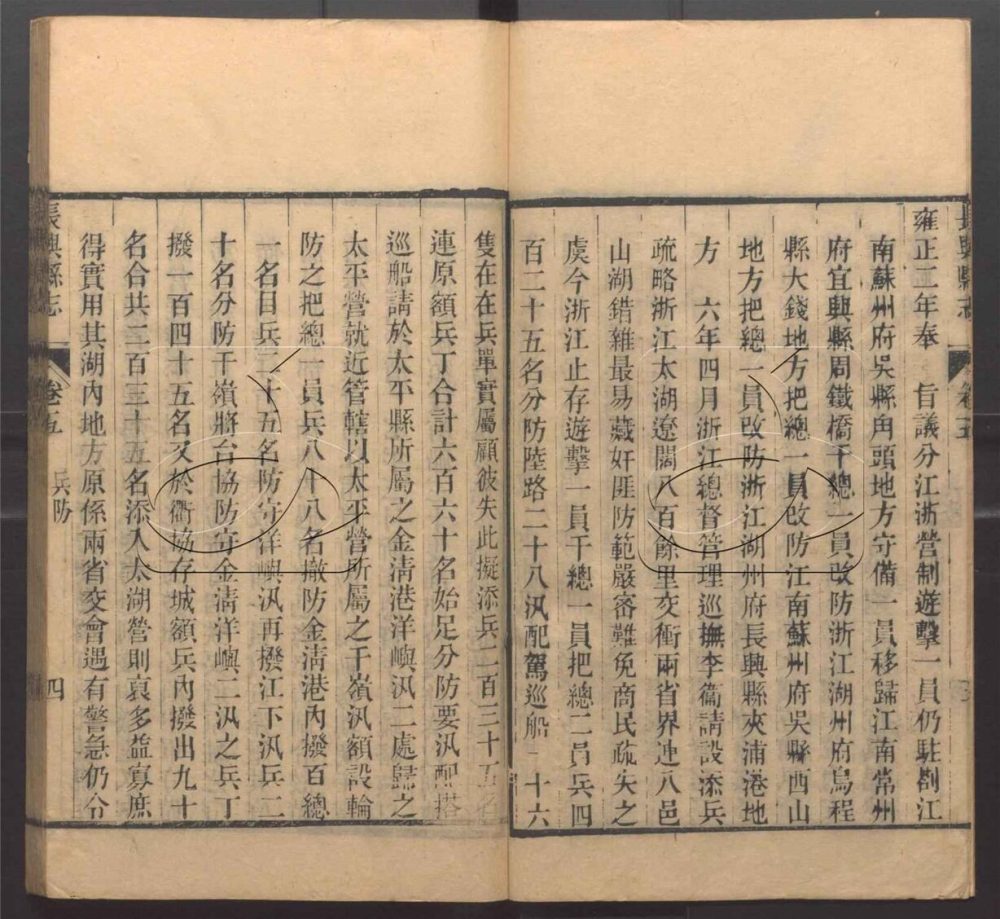 長興縣志
雍正二年奉　旨議分江浙營制遊擊一員仍駐劄江
南蘇州府吳縣甪頭地方守備一員移歸江南常州
府宜興縣周鐵橋千總一員改防浙江湖州府烏程
縣大錢地方把總一員改防江南蘇州府吳縣西山
地方把總一員改防浙江湖州府長興縣夾浦港地
方　六年四月浙江總督管理巡撫李衞請設添兵
疏略浙江太湖遼闊八百餘里交衝兩省界連八邑
山湖錯雜最易藏奸匪防範嚴密難免商民疏失之
虞今浙江止存遊擊一員千總一員把總二員兵四
百二十五名分防陸路二十八汛配駕巡船二十六
隻在在兵單實屬顧彼失此擬添兵二百三十五名
連原額兵丁合計六百六十名始足分防要汛配搭
巡船請於太平縣所屬之金淸港洋嶼汛二處歸之
太平營就近管轄以太平營所屬之千嶺汛額設輪
防之把總一員兵八十八名撤防金淸港內撥百總
一名目兵二十五名防守洋嶼汛再撥江下汛兵二
十名分防千嶺將台協防守金淸洋嶼二汛之兵丁
撥一百四十五名又於衢協存城額兵內撥出九十
名合共二百三十五名添入太湖營則裒多益寡庶
得實用其湖內地方原係兩省交會遇有警急仍分
長興縣志
卷五
兵防
四